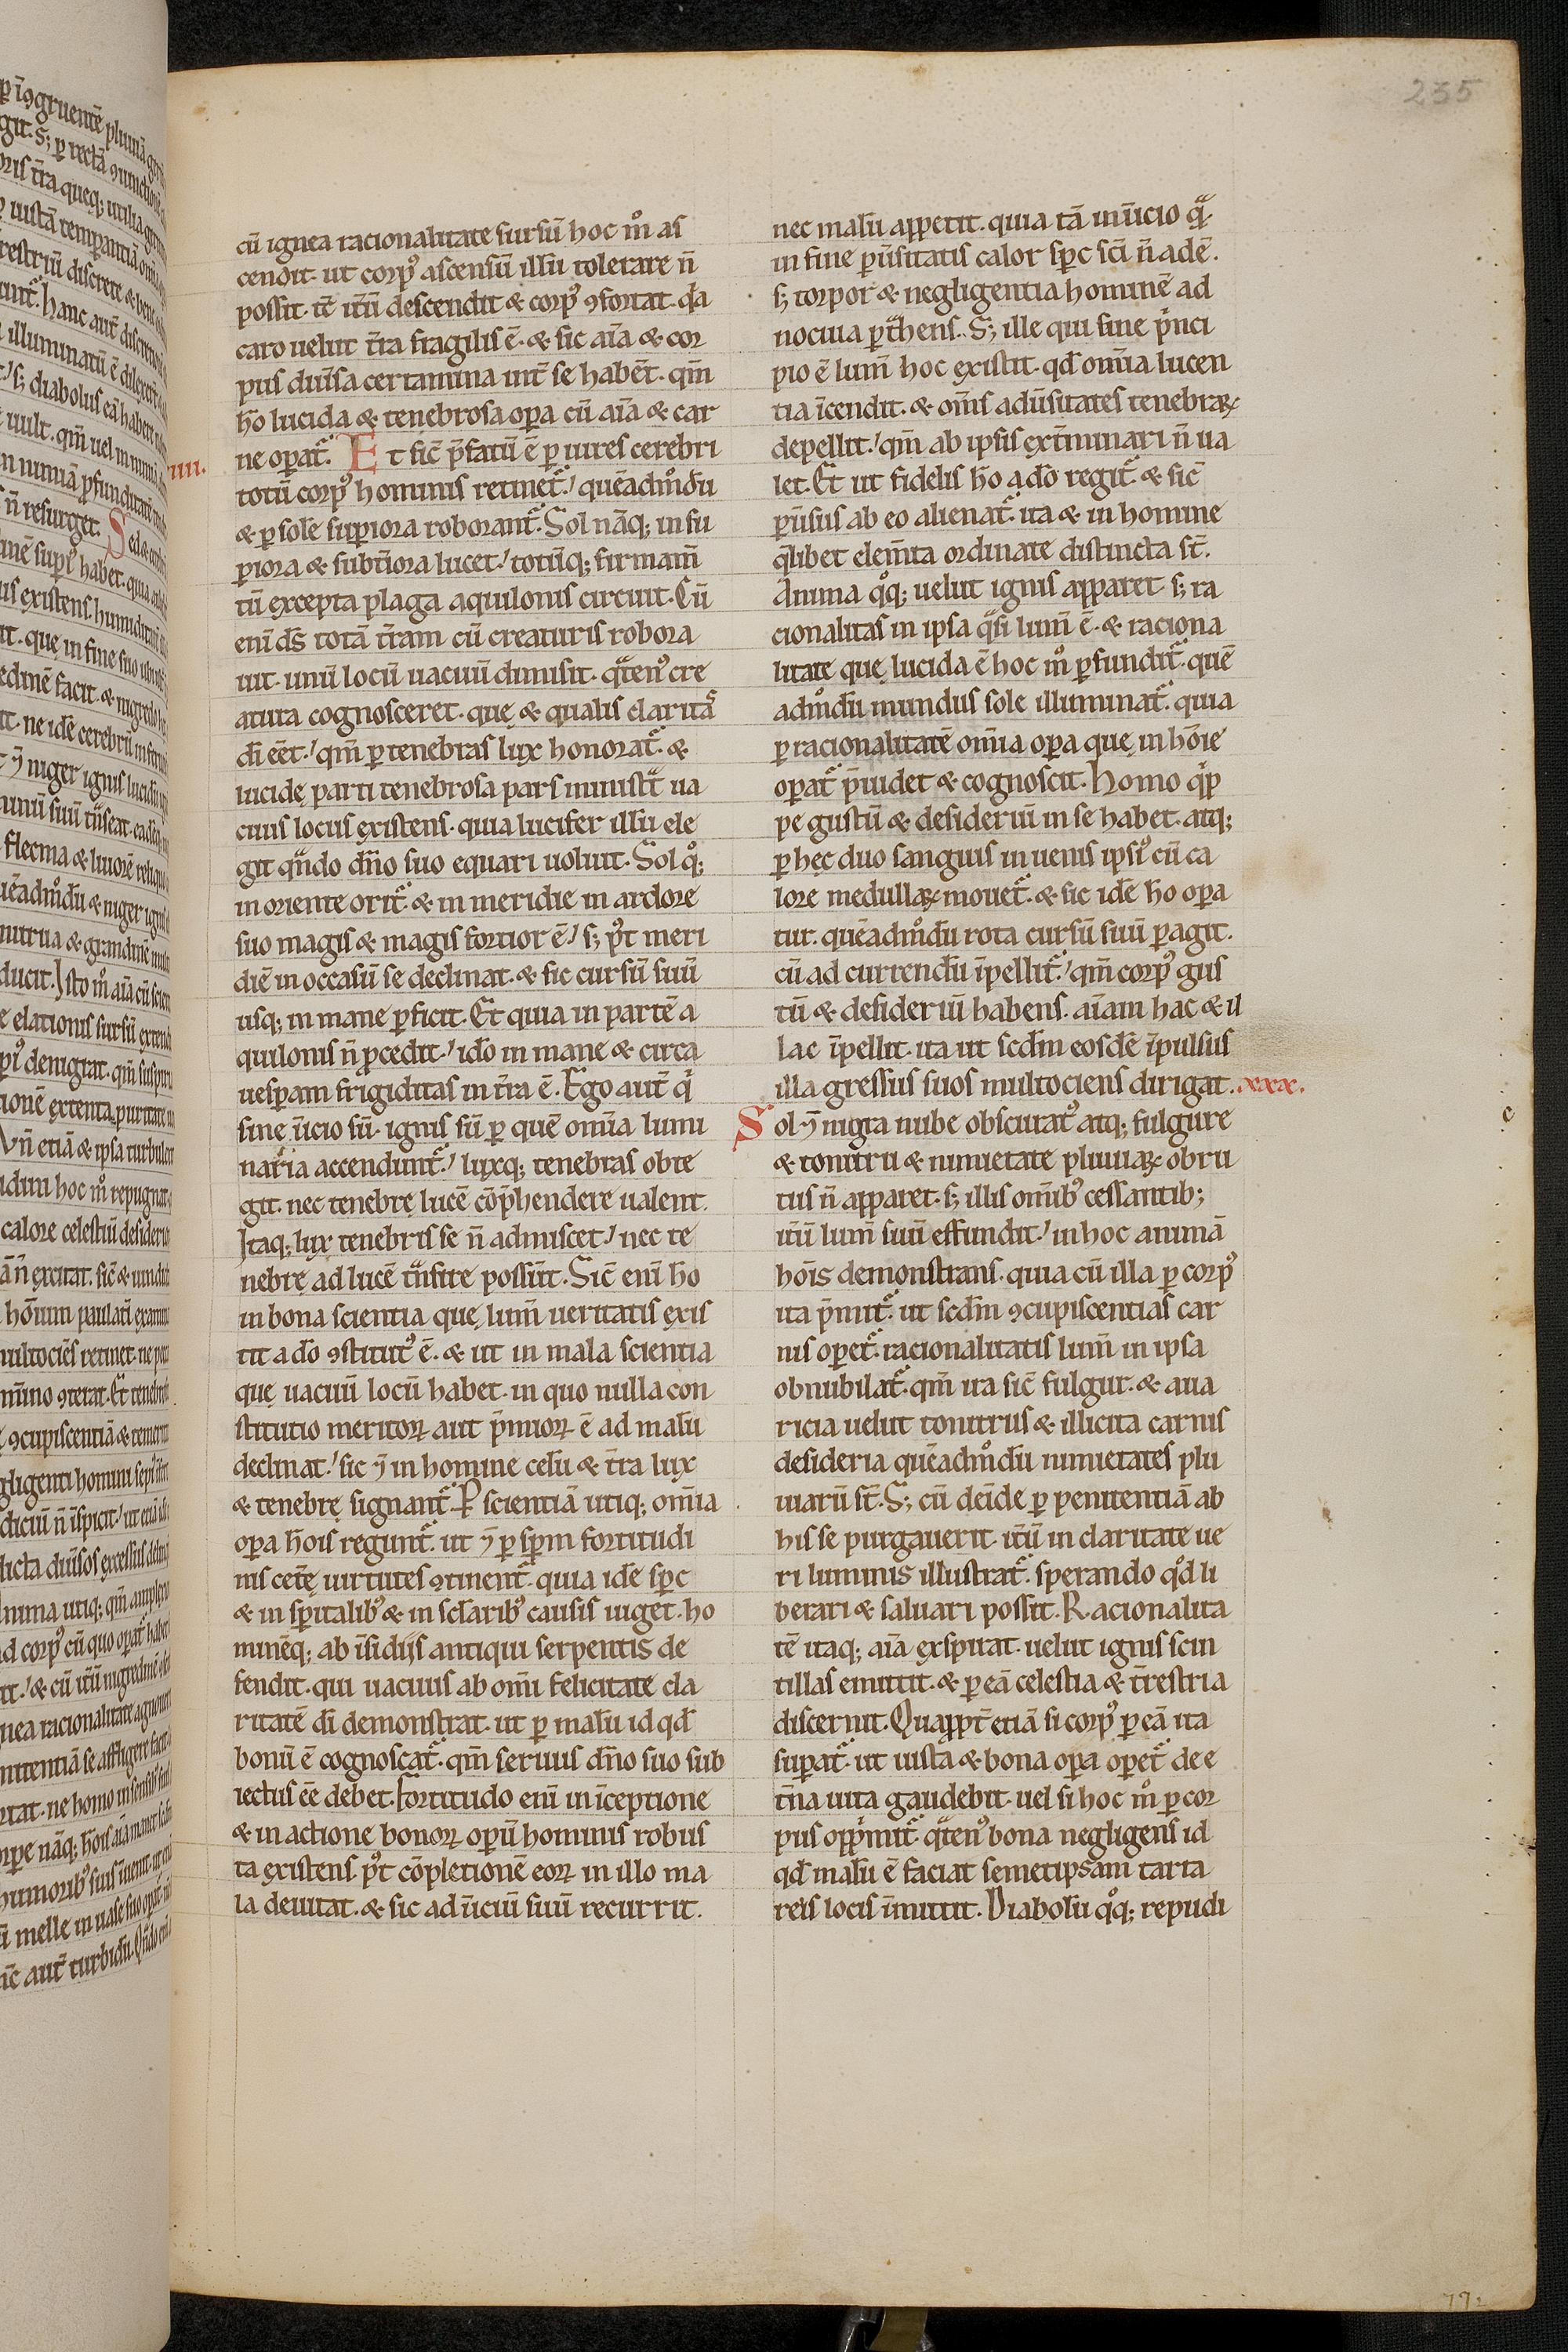 235
cū ignea racionalitate sursū hoc m͛o as
cendit. ut corpꝰ ascensū illū tolerare n̄
possit. tc̄ itū descendit & corpꝰ ꝯfortat. qͣa
caro uelut t̄ra fragilis ē. & sic aīa & cor
pus diūsa certamina int̄ se habēt. qm̄
hō lucida & tenebrosa oꝑa cū aīa & car
iiii.
ne oꝑat᷑. Et sic̄ p̄fatū ē ꝑ uires cerebri
totū corpꝰ hominis retinet᷑. quēadmͦdū
& ꝑ sole suꝑiora roborant᷑. Sol nāq; in su
ꝑiora & subt̄iora lucet. totūq; firmam̄
tū excepta plaga aquilonis circuit. Cū
eni ds̄ totā t̄ram cū creaturis robora
uit. unū locū uacuū dimisit. qͣtenꝰ cre
atura cognosceret. quę & qualis claritas
dī eēt. qm̄ ꝑ tenebras lux honorat᷑. &
lucidę parti tenebrosa pars ministͣt ua
cuus locus existens. quia lucifer illū ele
git qn̄do dn̄o suo equari uoluit. Sol qͦ;
in oriente orit᷑ & in meridie in ardore
suo magis & magis fortior ē. s; pꝰt meri
diē in occasū se declinat. & sic cursū suū
usq; in mane ꝑficit. Et quia in partē a
quilonis n̄ ꝓcedit. idō in mane & circa
uesꝑam frigiditas in t̄ra ē. Ego aut̄ qͥ
sine īicio sū. ignis sū ꝑ quē om̄ia lumi
naria accendunt᷑. luxq; tenebras obte
git. nec tenebrę lucē cōp̄hendere ualent.
Itaq; lux tenebris se n̄ admiscet. nec te
nebrę ad lucē tͣnsire possūt. Sic̄ eni hō
in bona scientia quę lum̄ ueritatis exis
tit a dō ꝯstitutꝰ ē. & ut in mala scientia
quę uacuū locū habet. in quo nulla con
stitutio meritoꝝ aut p̄mioꝝ ē ad malū
declinat. sic ⁊ in homine celū & t̄ra lux
& tenebrę signant᷑. Ꝑ scientiā utiq; om̄ia
oꝑa hōis regunt᷑. ut ⁊ ꝑ sp̄m fortitudi
nis cet̄ę uirtutes ꝯtinent᷑. quia idē spc̄
& in sp̄italibꝰ & in sc̄laribꝰ causis uiget. ho
minēq; ab īsidiis antiqui serpentis de
fendit. qui uacuus ab omī felicitate cla
ritatē dī demonstrat. ut ꝑ malū id qd̄
bonū ē cognoscat᷑. qm̄ seruus dn̄o suo sub
iectus eē debet. Fortitudo eni in īceptione
& in actione bonoꝝ oꝑū hominis robus
ta existens pꝰt cōpletionē eoꝝ in illo ma
la deuitat. & sic ad īiciū suū recurrit.
nec malū appetit. quia tā in īicio qͣ
in fine ꝑūsitatis calor spc̄ sc̄i n̄ adē.
s; torpor & negligentia hominē ad
nociua ꝑtͣhens. S; ille qui sine p̄nci
pio ē lum̄ hoc existit. qd̄ om̄ia lucen
tia īcendit. & om̄s adūsitates tenebraꝝ
depellit. qm̄ ab ipsis ext̄minari n̄ ua
let. Et ut fidelis hō a dō regit᷑ & sic̄
ꝑūsus ab eo alienat᷑. ita & in homine
qͥlibet elem̄ta ordinate distincta st̄.
Anima qͦq; uelut ignis apparet s; ra
cionalitas in ipsa qͣsi lum̄ ē. & raciona
litate quę lucida ē hoc mͦ ꝑfundit᷑. quē
admͦdū mundus sole illuminat᷑. quia
ꝑ racionalitatē om̄ia oꝑa quę in hōie
oꝑat᷑ p̄uidet & cognoscit. Homo qͥp
pe gustū & desideriū in se habet. atq;
ꝑ hęc duo sanguis in uenis ipsiꝰ cū ca
lore medullaꝝ mouet᷑. & sic idē hō oꝑa
tur. quēadmͦdū rota cursū suū ꝑagit.
cū ad currendū īpellit᷑. qm̄ corpꝰ gus
tū & desideriū habens. aīam hac & il
lac īpellit. ita ut scd̄m eosdē īpulsus
illa gressus suos multociens dirigat. xxx.
Sol ⁊ nigra nube obscuratꝰ atq; fulgure
& tonitru & nimietate pluuiaꝝ obru
tus n̄ apparet. s; illis om̄ibꝰ cessantib;
itū lum̄ suū effundit. in hoc animā
hōis demonstrans. quia cū illa ꝑ corpꝰ
ita p̄mit᷑. ut scd̄m ꝯcupiscentias car
nis oꝑet᷑. racionalitatis lum̄ in ipsa
obnubilat᷑. qm̄ ira sic̄ fulgur. & aua
ricia uelut tonitrus & illicita carnis
desideria quēadmͦdū nimietates plu
uiarū st̄. S; cū deīde ꝑ penitentiā ab
his se purgauerit. itū in claritate ue
ri luminis illustrat᷑. sperando qͦd li
berari & saluari possit. Racionalita
tē itaq; aīa exspirat. uelut ignis scin
tillas emittit. & ꝑ eā celestia & t̄restria
discernit. Quapp̄t etiā si corpꝰ ꝑ eā ita
suꝑat᷑. ut iusta & bona oꝑa oꝑet᷑ de e
t̄na uita gaudebit. uel si hoc mͦ ꝑ cor
pus opp̄mit᷑. qͣtenꝰ bona negligens id
qd̄ malū ē faciat semetipsam tarta
reis locis īmittit. Diabolū qͦq; repudi